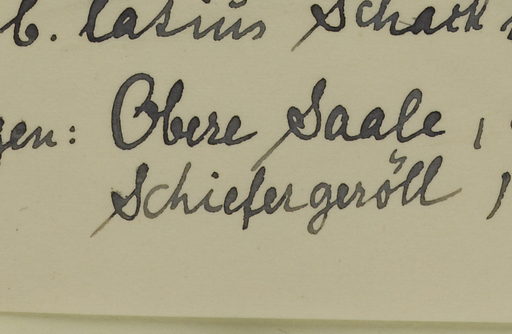 b. latius Schack
gen: Obere Saale,
Schiefergeröll,